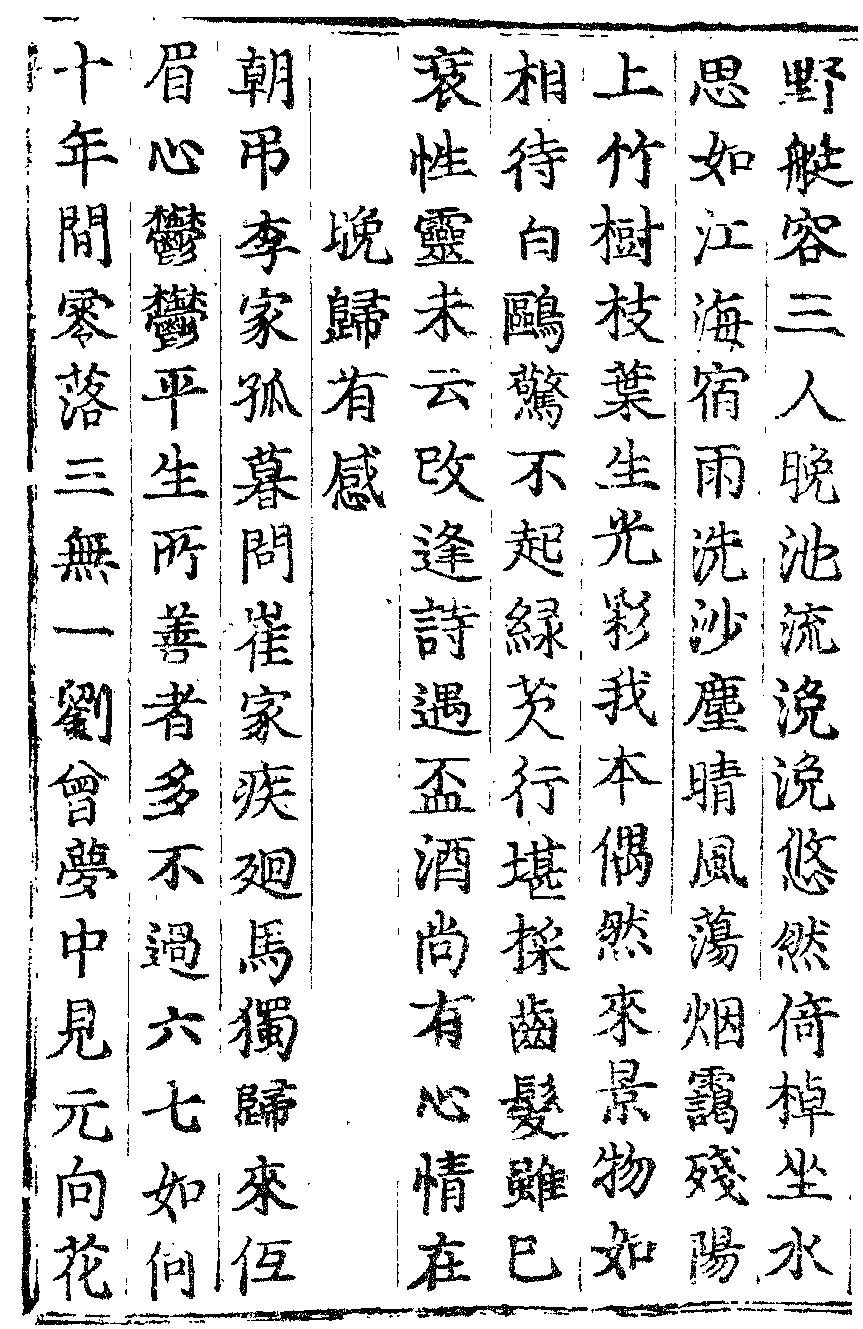 野艇容三人晚池流浼浼悠然倚棹坐水
思如江海宿雨洗沙塵晴風蕩烟靄殘陽
上竹樹枝葉生光彩我本偶然來景物如
相待白鷗驚不起緑芡行堪採齒髮雖已
衰性靈未云改逢詩遇盃酒尚有心情在
晚歸有感
朝弔李家孤暮問崔家疾廻馬獨歸來仾
眉心鬱鬱平生所善者多不過六七如何
十年間零落三無一劉曾夢中見元向花